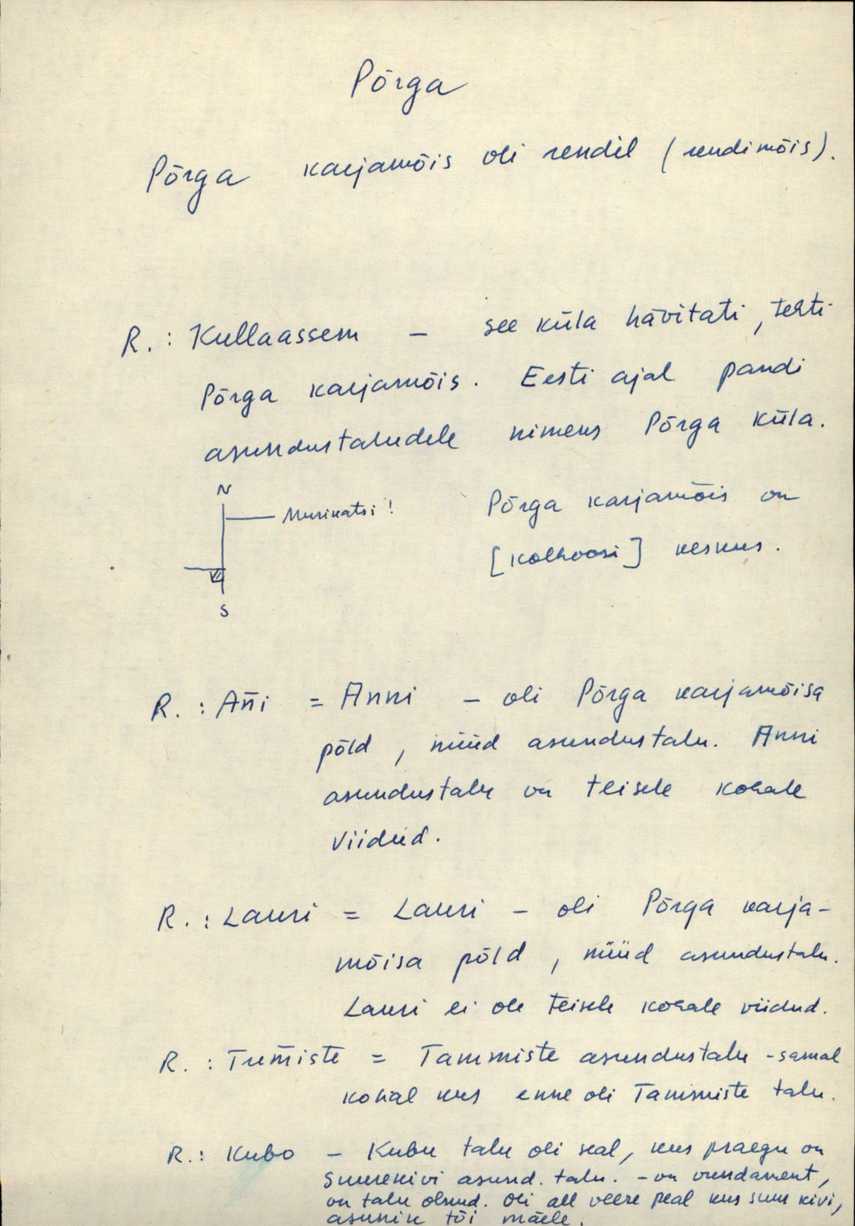 Põrga
Põrga karjamõis oli rendil (rendimõis).
R.: Kullaassem – see küla hävitati, tehti
Põrga karjamõis. Eesti ajal pandi
asundustaludele nimeks Põrga küla.
N
Murikatsi!
Põrga karjamõis on
[kolhoosi] keskus.
S
R.: Añi = Anni – oli Põrga karjamõisa
põld, nüüd asundustalu. Anni
asundustalu on teisele kohale
viidud.
R.: Lauri = Lauri – oli Põrga karja-
mõisa põld, nüüd asundustalu.
Lauri ei ole teisele kohale viidud.
R.: = Tammiste asundustalu - samal
kohal kus enne oli Tammiste talu.
R.: Kubo – Kubu talu oli seal, kus praegu on
Suurekivi asund. talu. - on vundament,
on talu olnud. Oli all veere peal kus suur kivi,
asunik tõi mäele.